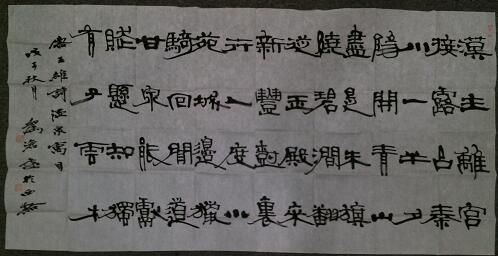 漢主離宮
接露台秦
川一半夕
陽開青山
盡是朱旗
繞碧澗翻
從玉殿來
新豐樹裏
行人度小
苑城邊獵
騎回聞道
甘泉能獻
賦懸知獨
有子雲才
王維詩温泉寓目
戊子秋月